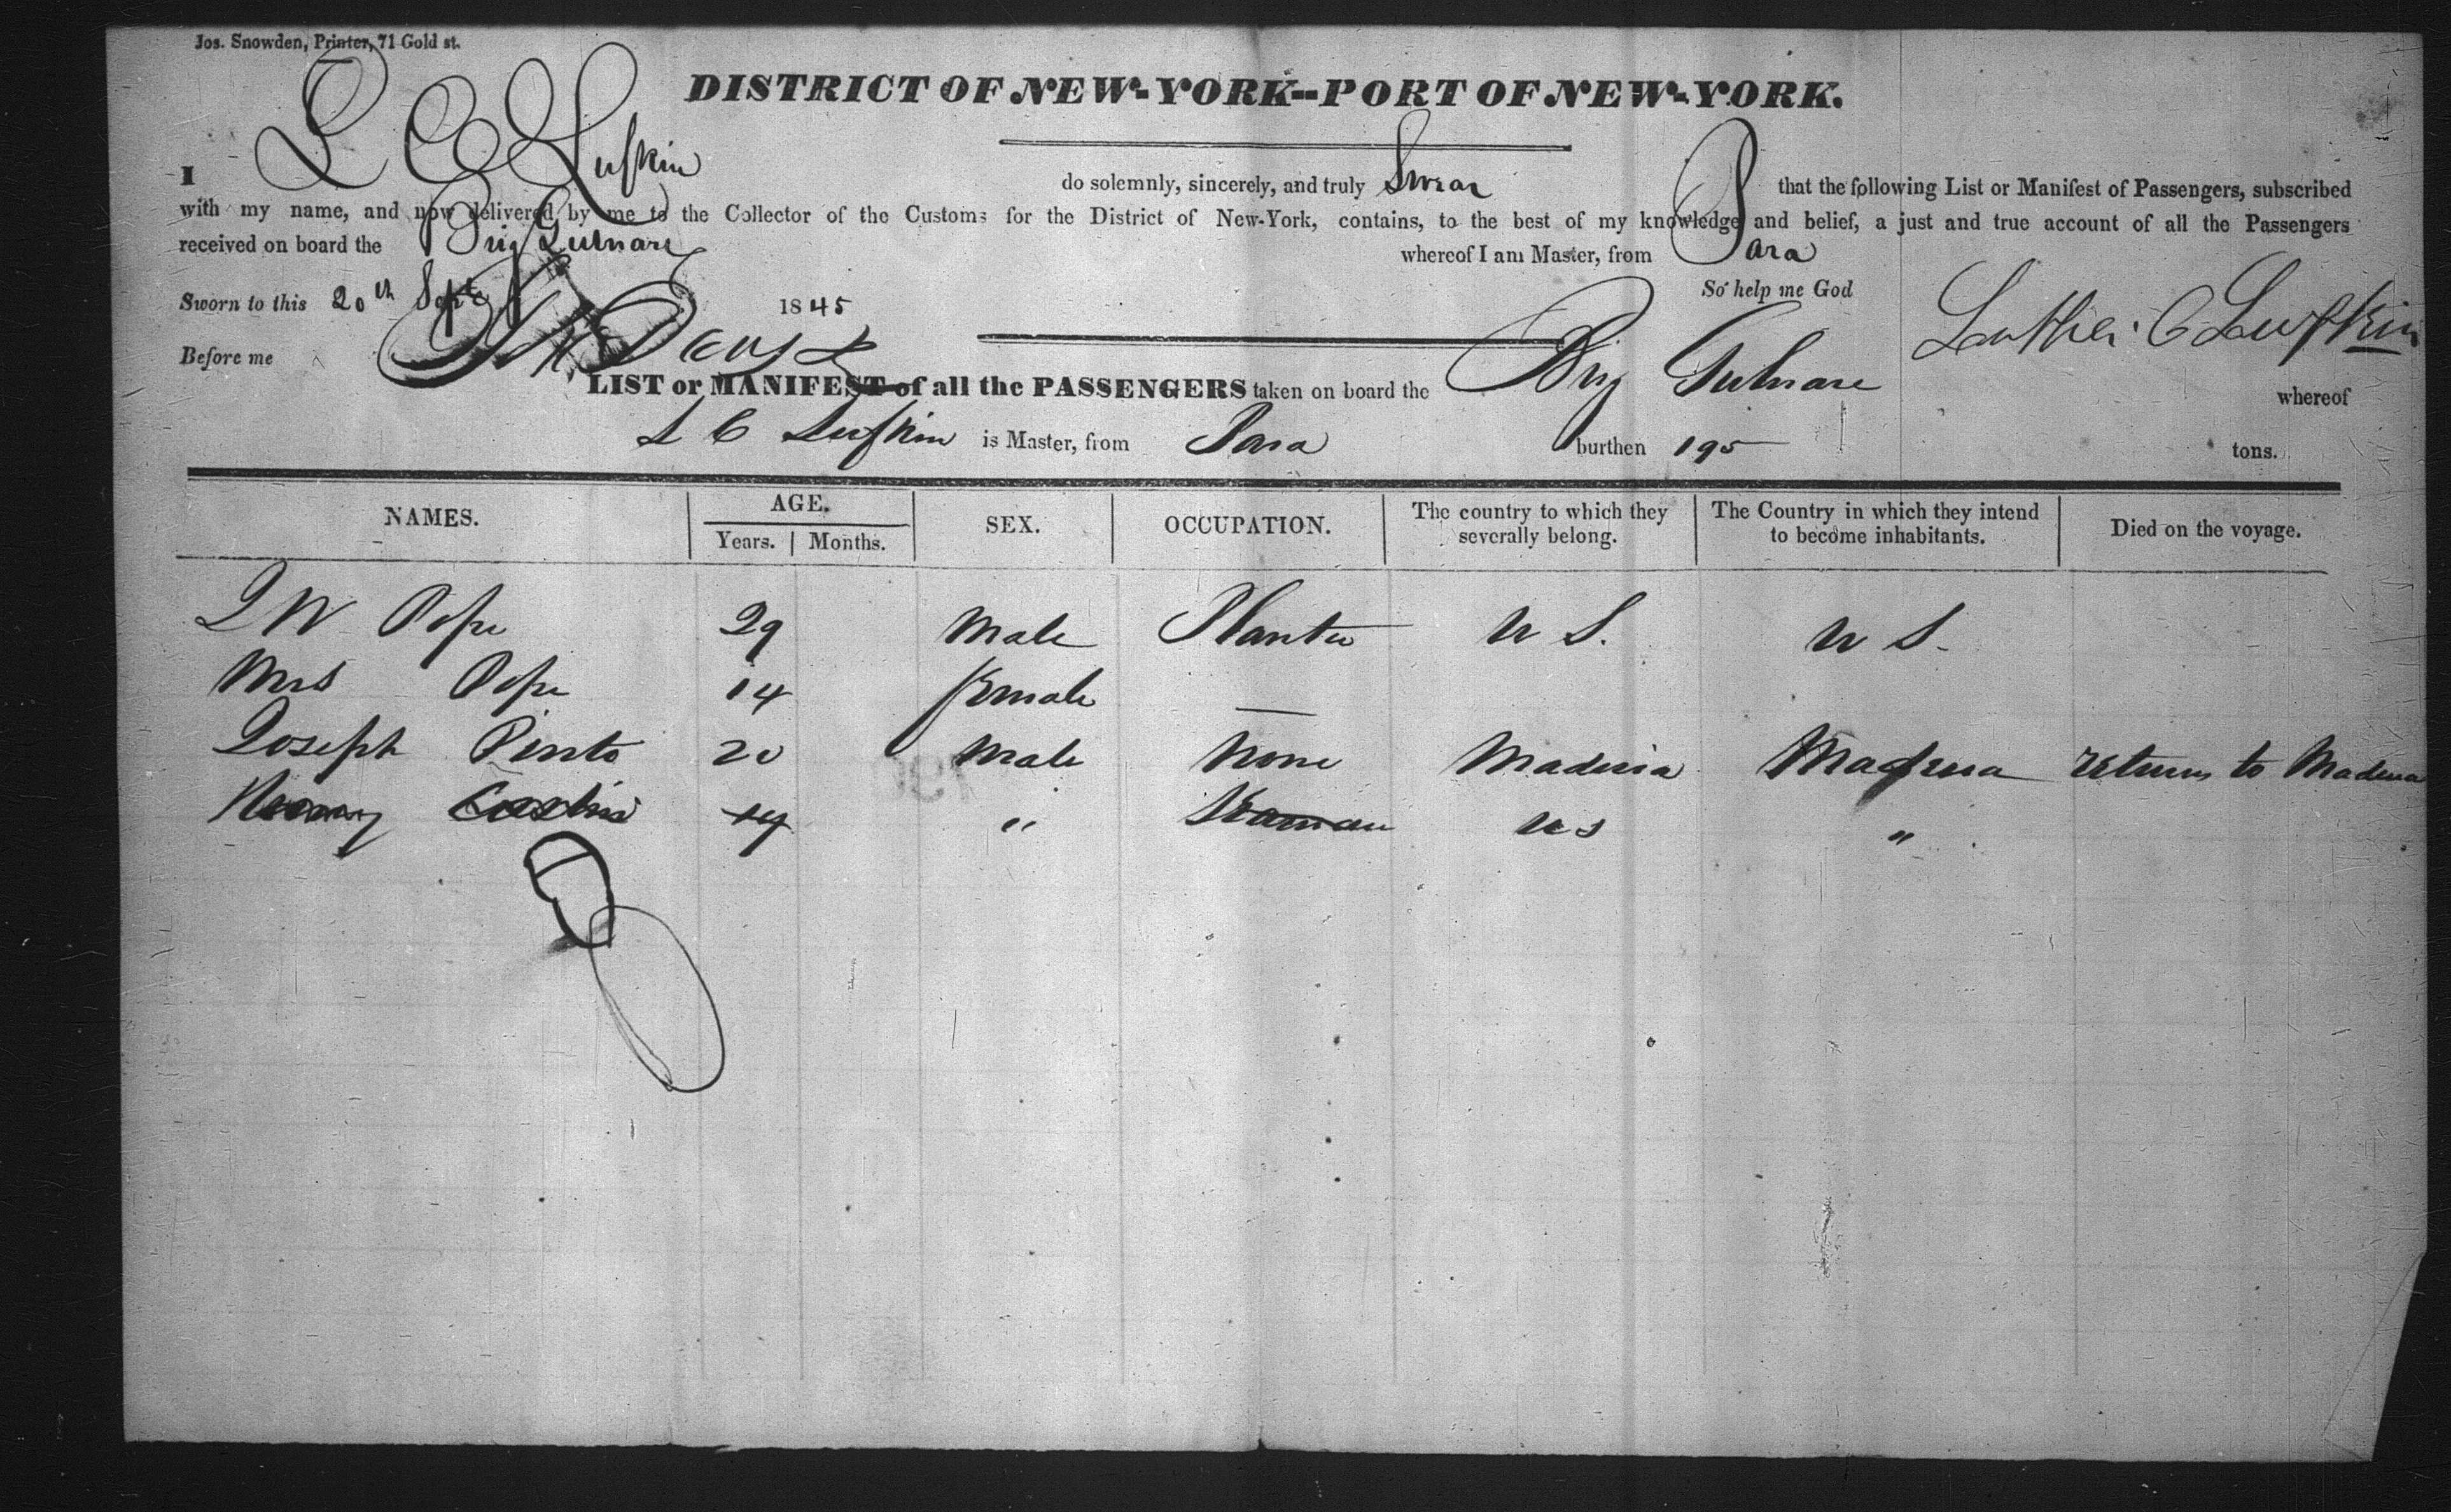 Jos. Snowden, Printer, 71 Gold st.
DISTRICT OF NEW-YORK--PORT OF NEW-YORK.
I L C Lufkin do solemnly, sincerely, and truly Swear that the following List or Manifest of Passengers, subscribed
with my name, and now delivered by me to the Collector of the Customs for the District of New-York, contains, to the best of my knowledge and belief, a just and true account of all the Passengers
received on board the Brig Gulnare whereof I am Master, from Para
Sworn to this 20th Sept 1845 So help me God
Luther C Lufkin
Before me
LIST or MANIFEST of all the PASSENGERS taken on board the Brig Gulnare whereof
L C Lufkin is Master, from Para burthen 195 tons.
NAMES. AGE. SEX. OCCUPATION. The country to which they severally belong. The Country in which they intend to become inhabitants. Died on the voyage.
Years. Months.
J W Pope 29 Male Planter U S. U S.
Mrs Pope 14 female —
Joseph Pinto 20 Male None Maderia Madeira returns to Madeira
Henry 14 " Seaman U S "